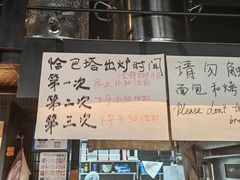 恰巴塔出炉时间
第一次 早上11:30(左右)
第二次 下午1:30(左右)
第三次 下午3:30(左右)
请勿触
面包和烤
Please don't to
bre